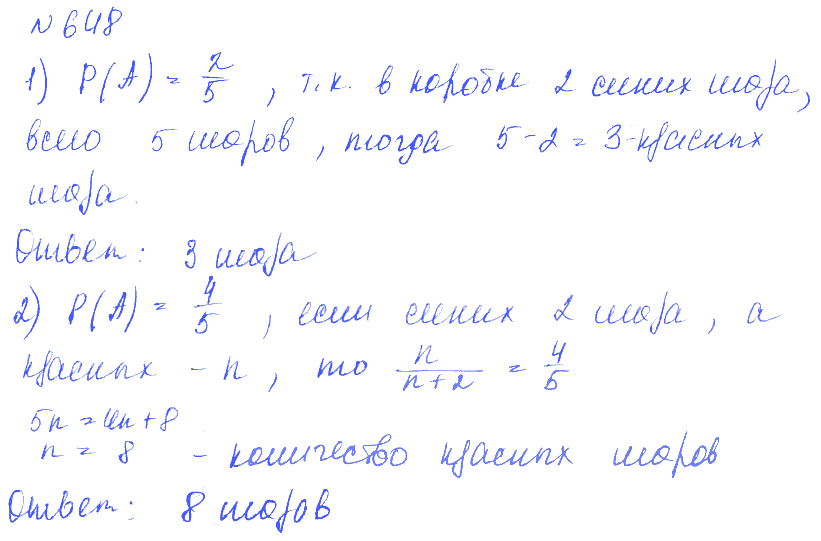 N 648
1) P(A) = 2/5 , т.к. в коробке 2 синих шара,
всего 5 шаров , тогда 5-2 = 3-красных
шара.
Ответ: 3 шара
2) P(A) = 4/5 , если синих 2 шара , а
красных - n , то n/(n+2) = 4/5
5n = 4n+8
n = 8 - количество красных шаров
Ответ: 8 шаров